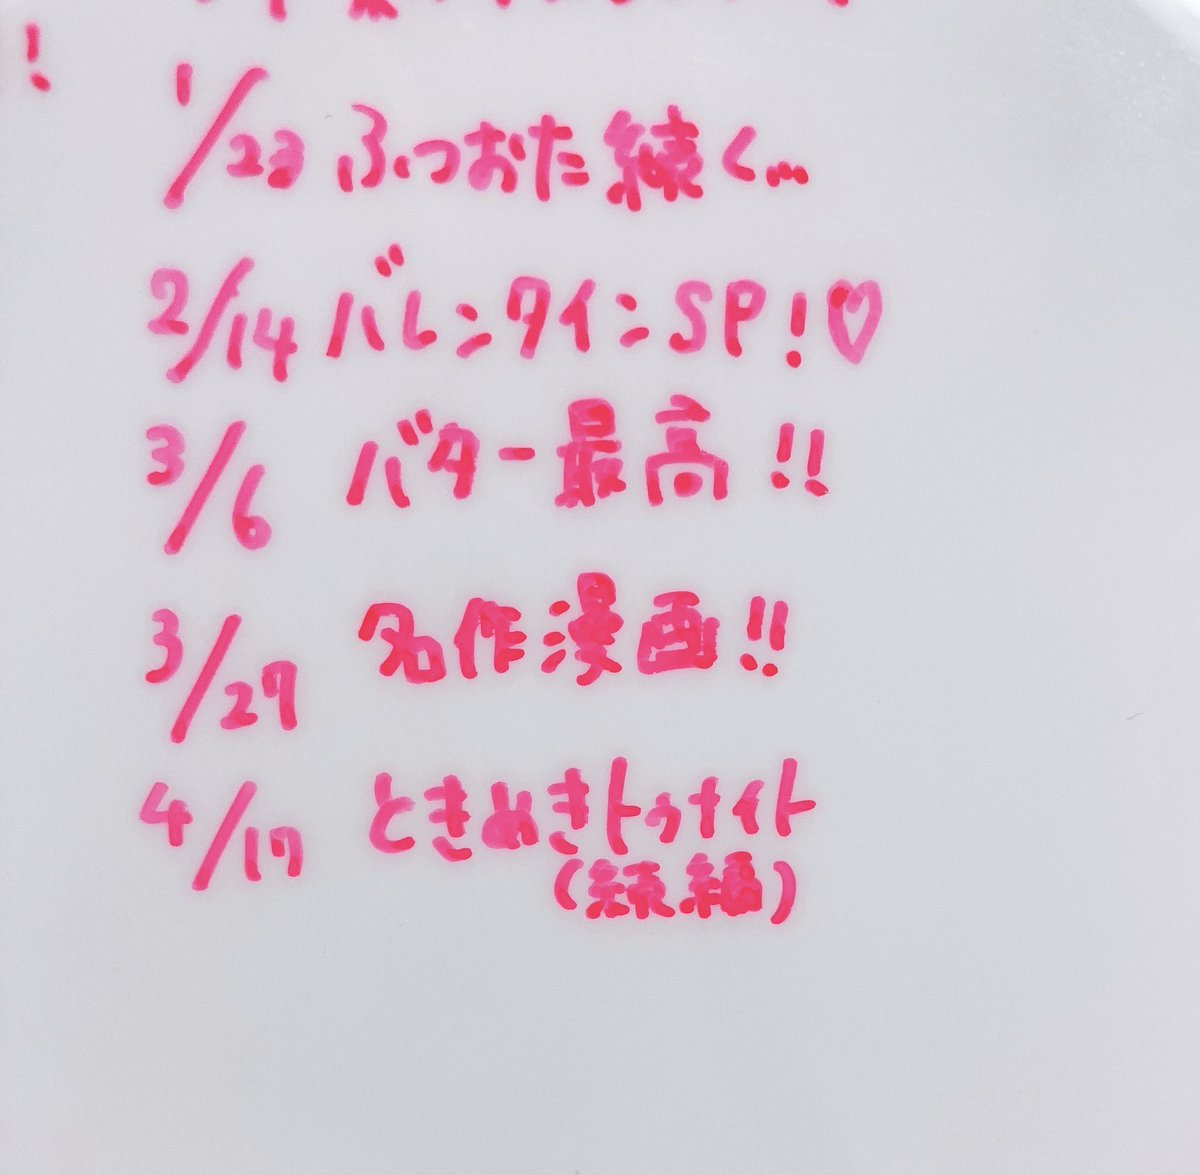 !
1/23 ふつおた続く…
2/14 バレンタインSP!♡
3/6 バター最高!!
3/27 名作漫画!!
4/17 ときめきトゥナイト
(続編)